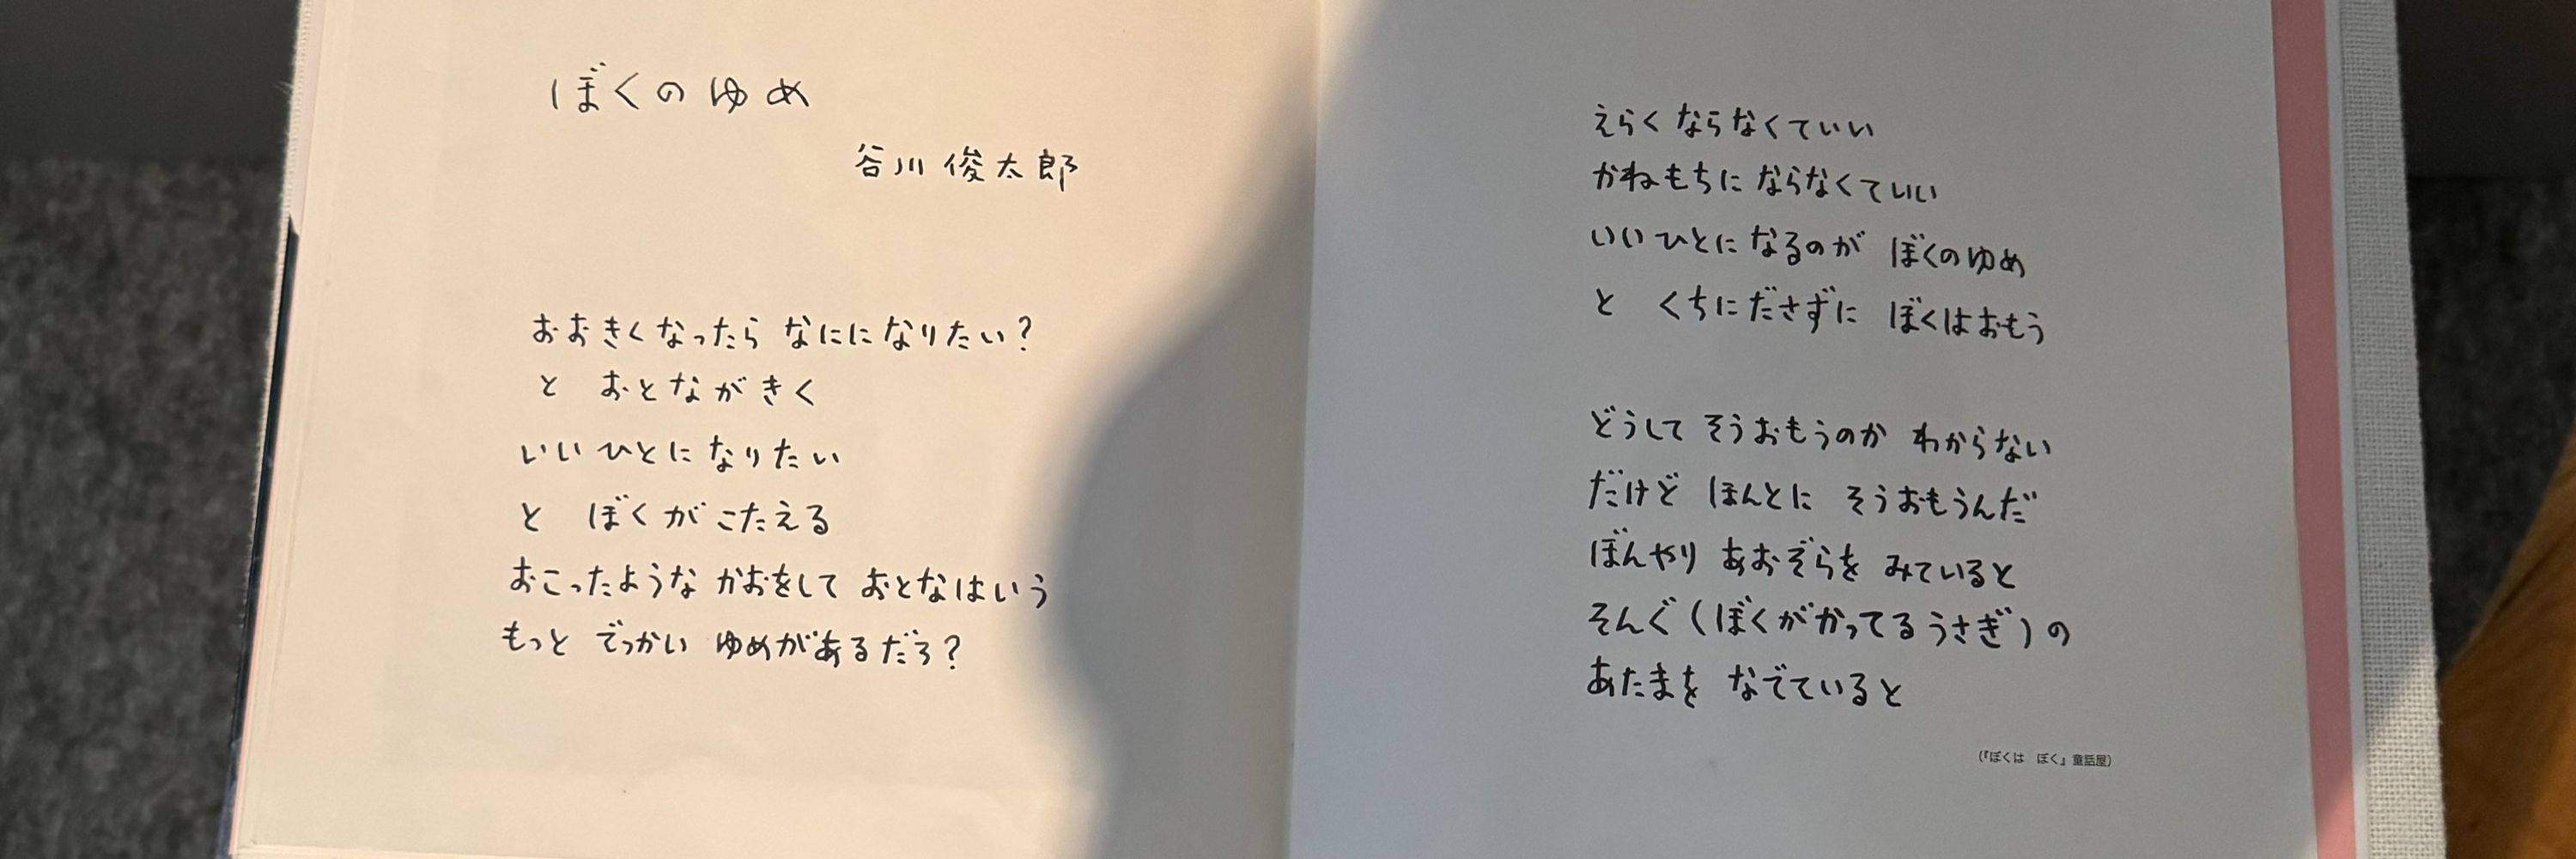 ぼくのゆめ
谷川俊太郎
おおきくなったら なにになりたい?
と おとながきく
いいひとになりたい
と ぼくがこたえる
おこったような かおをして おとなはいう
もっと でっかい ゆめがあるだろ?
えらくならなくていい
かねもちに ならなくていい
いいひとに なるのが ぼくのゆめ
と くちにださずに ぼくはおもう
どうして そうおもうのか わからない
だけど ほんとに そうおもうんだ
ぼんやり あおぞらを みていると
そんぐ(ぼくがかってるうさぎ)の
あたまを なでていると
(『ぼくは ぼく』童話屋)